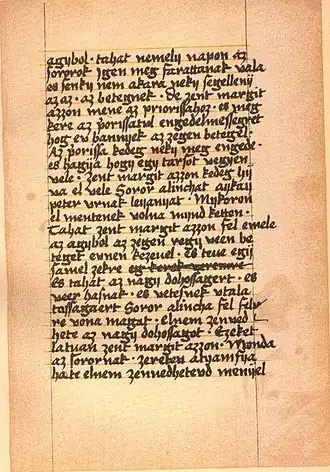 agybol · tahat nemely napon az
sororok igen meg farattanak vala
es senky nem akara neky segelleny
az az · az betegnek · De zent margit
azzon mene az priorissahoz · es meg
kere az priorissatul engedelmesseget
hog ev bannyek az zegen beteggel ·
Az priorissa kedeg neky meg engede ·
es hagya hogy egy tarsot vegyen
vele · zent margit azzon kedeg hy
va el vele Soror alinchat
peter vrnak leyanyat · Mykoron
el mentenek volna mynd ketten ·
Tahat zent margit azzon fel emele
az agybol az zegen vegy veen be
teget evnen kezevel · es teve egy
samel zekre
es tahat az nagy dohossagert · es
veer hasnak · es vetesnek vtala
tossagaert Soror alincha fel felyv
re vona magat · elnem zenved
hete az nagy dohossagot · Ezeket
latuan zent margit azzon · Monda
az sorornak · zeretev atyamfya
ha te elnem zenvedheteud menyel